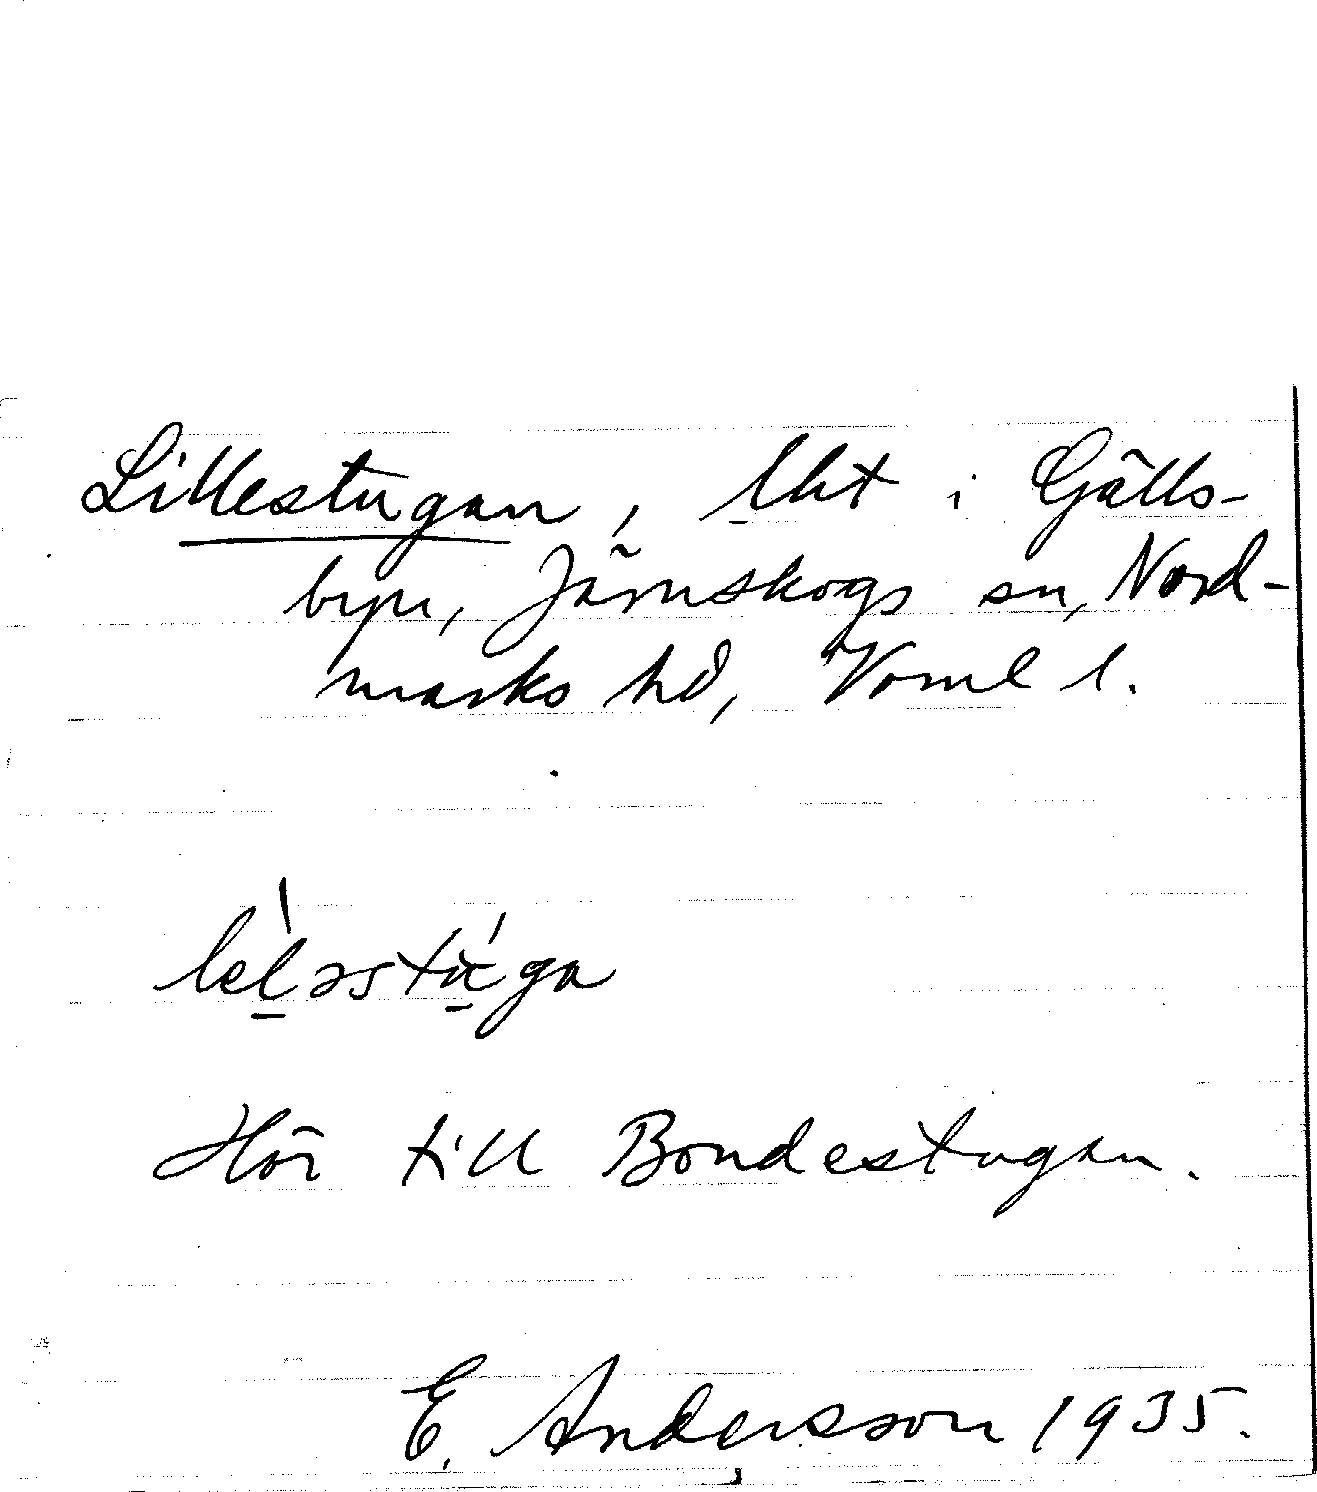 Lillestugan, lht i Gälls-
byn, Järnskogs sn, Nord-
marks hd, Värml l.
leləstuga
Hör till Bondestugan.
E. Andersson 1935.